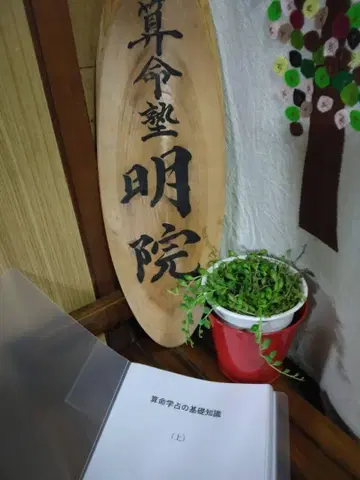 算命塾
明院
算命学占の基礎知識
（上）